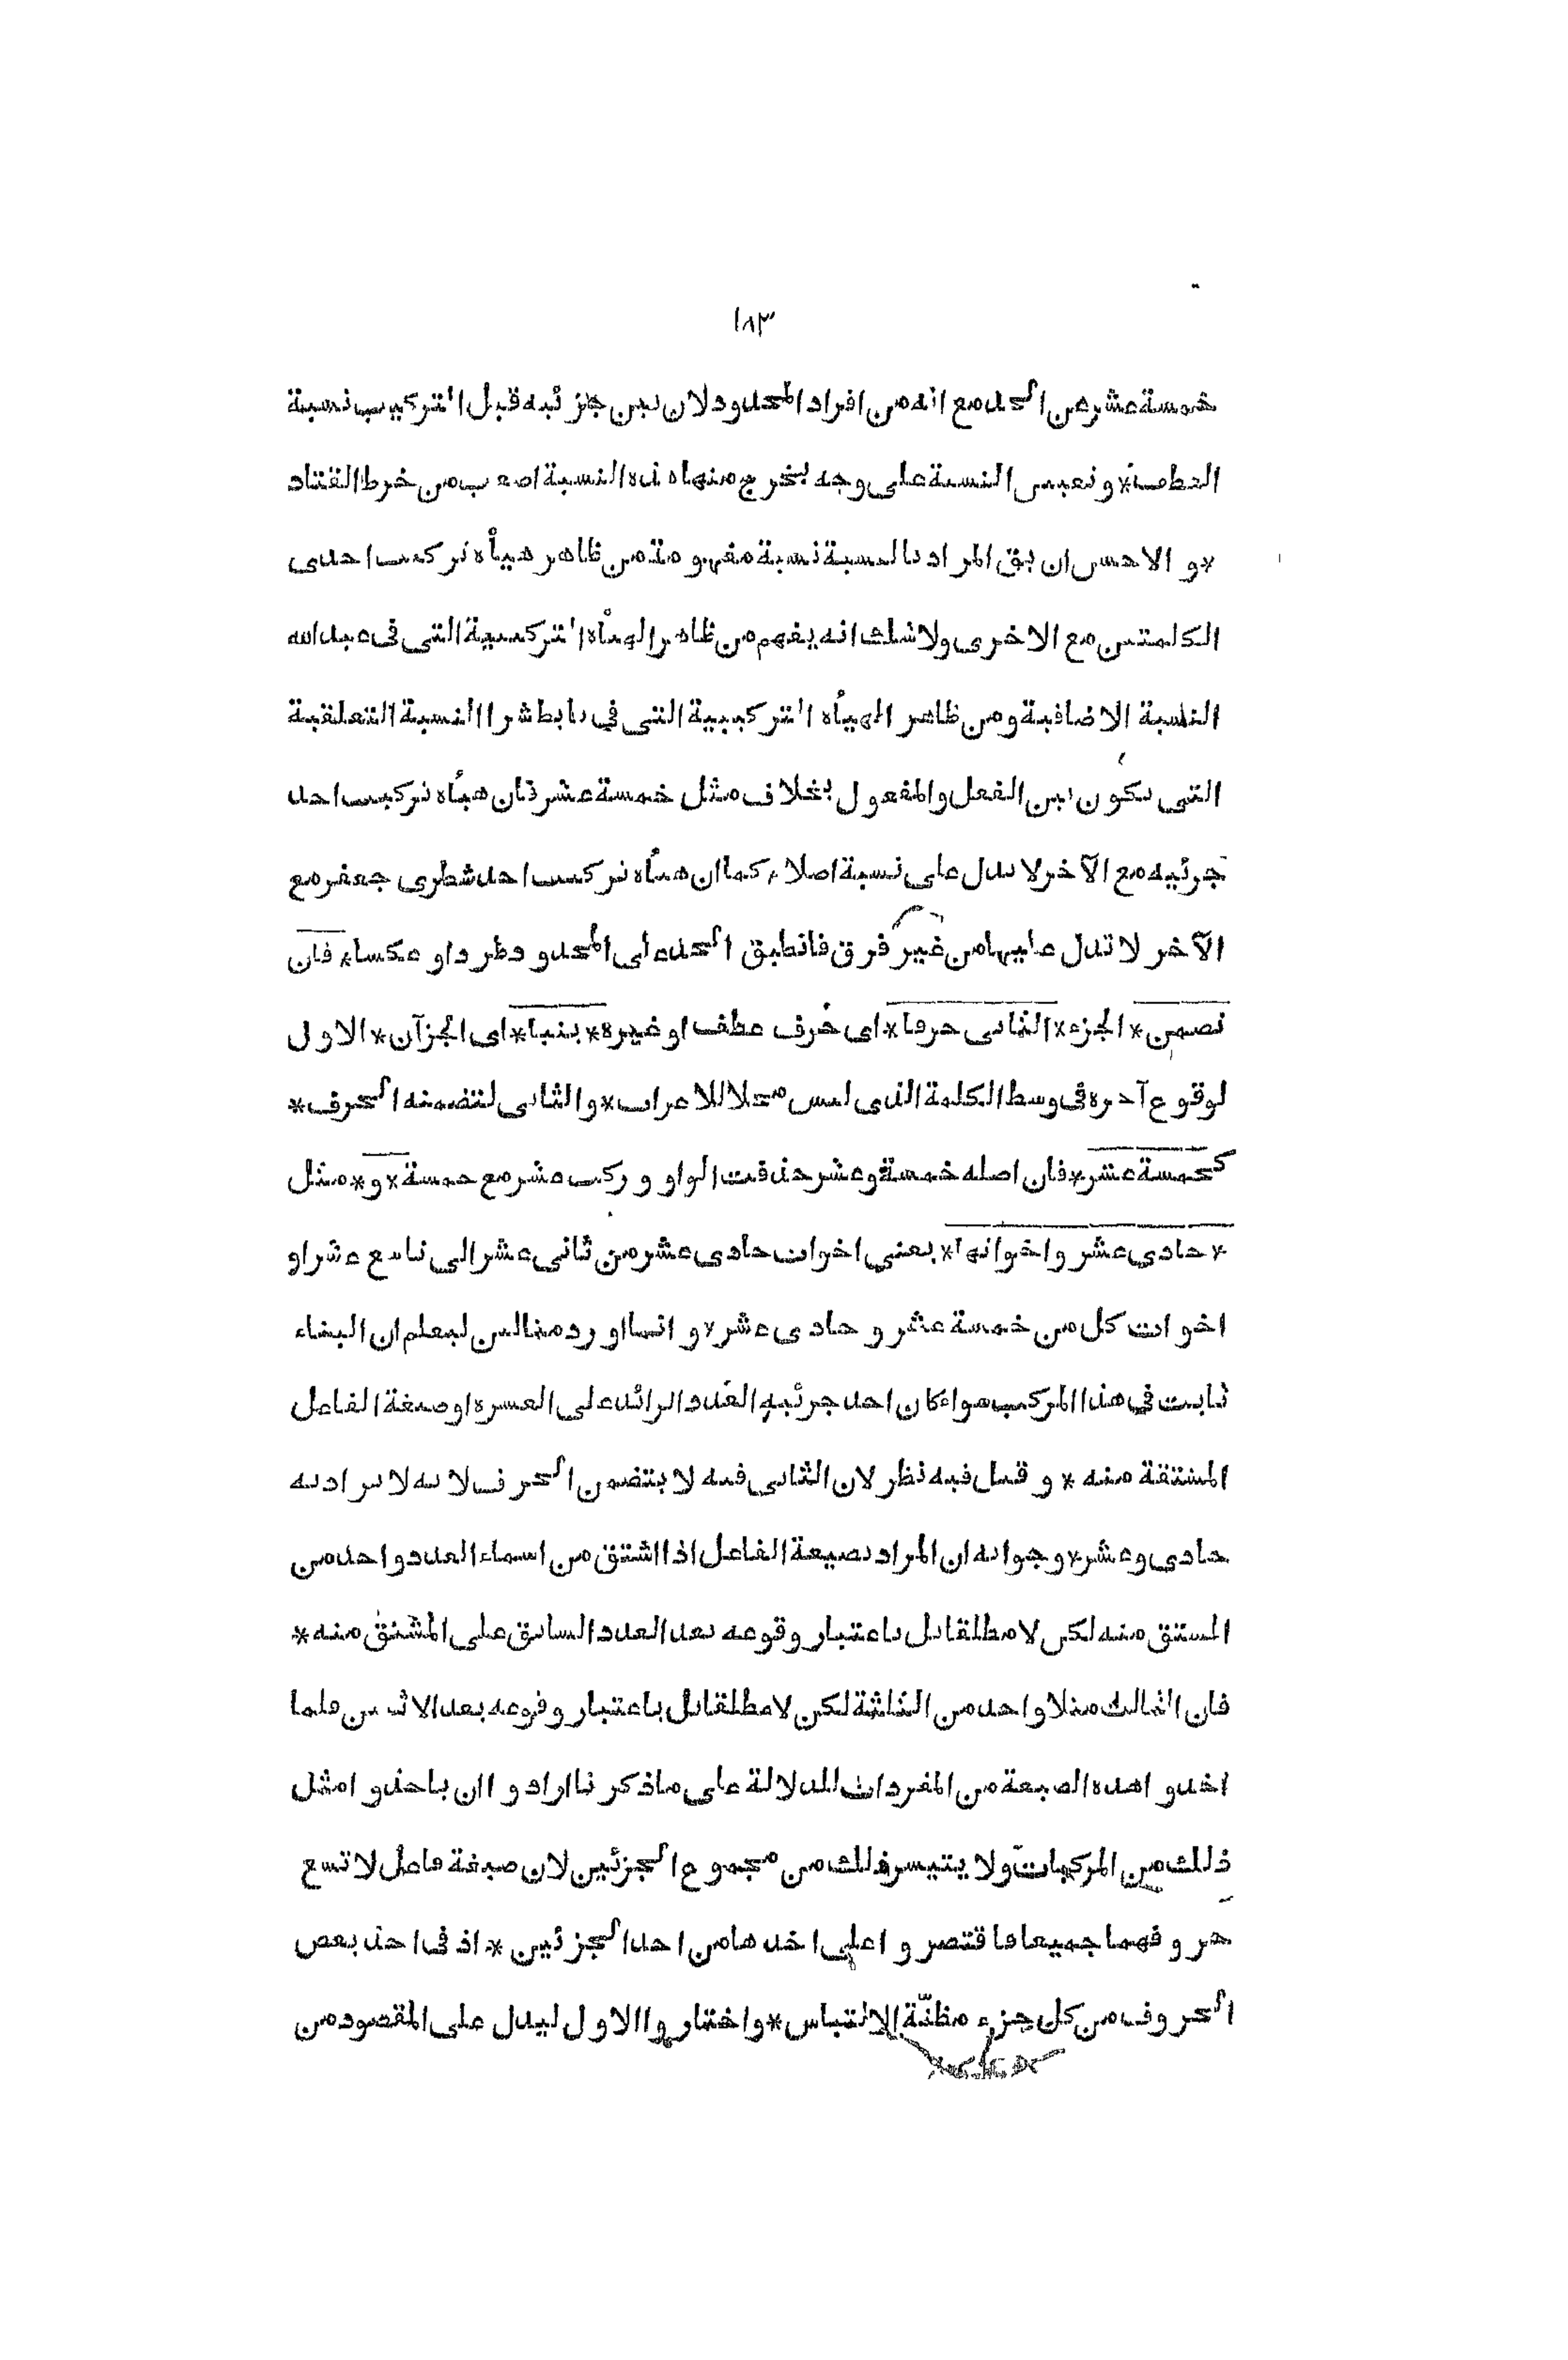 ١٨٣
خمسة عشر عن الحد مع انه من افراد المحدود لان بين جزئيه قبل التركيب نسبة
العطف * و تعيين النسبة على وجه يخرج منها هذه النسبة اصعب من خرط القتاد
* و الاحسن ان يق المراد بالنسبة نسبة مفهومة من ظاهر هيأة تركيب احدى
الكلمتين مع الاخرى ولا شك انه يفهم من ظاهر الهيأة التركيبية التى فى عبد الله
النسبة الاضافية ومن ظاهر الهيأة التركيبية التى فى تابط شرا النسبة التعلقية
التى تكون بين الفعل والمفعول بخلاف مثل خمسة عشر فان هيأة تركيب احد
جزئيه مع الآخر لا تدل على نسبة اصلا * كما ان هيأة تركيب احد شطرى جعفر مع
الآخر لا تدل عليها من غير فرق فانطبق الحد على المحدود طردا و عكسا * فان
تضمن * الجزء * الثانى حرفا * اى حرف عطف او غيره * بنيا * اى الجزآن * الاول
لوقوع آخره فى وسط الكلمة الذى ليس محلا للاعراب * والثانى لتضمنه الحرف *
كخمسة عشر * فان اصله خمسة وعشر حذفت الواو و ركب عشر مع خمسة * و * مثل
* حادى عشر واخواتها * يعنى اخوات حادى عشر من ثانى عشر الى تاسع عشر او
اخوات كل من خمسة عشر و حادى عشر * و انما اورد مثالين ليعلم ان البناء
ثابت فى هذا المركب سواء كان احد جزئيه العدد الزائد على العشرة او صيغة الفاعل
المشتقة منه * و قيل فيه نظر لان الثانى فيه لا يتضمن الحرف لانه لا يراد به
حادى وعشر * وجوابه ان المراد بصيغة الفاعل اذا اشتق من اسماء العدد واحد من
المشتق منه لكن لا مطلقا بل باعتبار وقوعه بعد العدد السابق على المشتق منه *
فان الثالث مثلا واحد من الثلثة لكن لا مطلقا بل باعتبار وقوعه بعد الاثنين فلما
اخذوا هذه الصيغة من المفردات للدلالة على ما ذكرنا ارادوا ان ياخذوا مثل
ذلك من المركبات ولا يتيسر ذلك من مجموع الجزئين لان صيغة فاعل لا تسع
حروفهما جميعا فاقتصروا على اخذها من احد الجزئين * اذ فى اخذ بعض
الحروف من كل جزء مظنّة الالتباس * واختاروا الاول ليدل على المقصود من